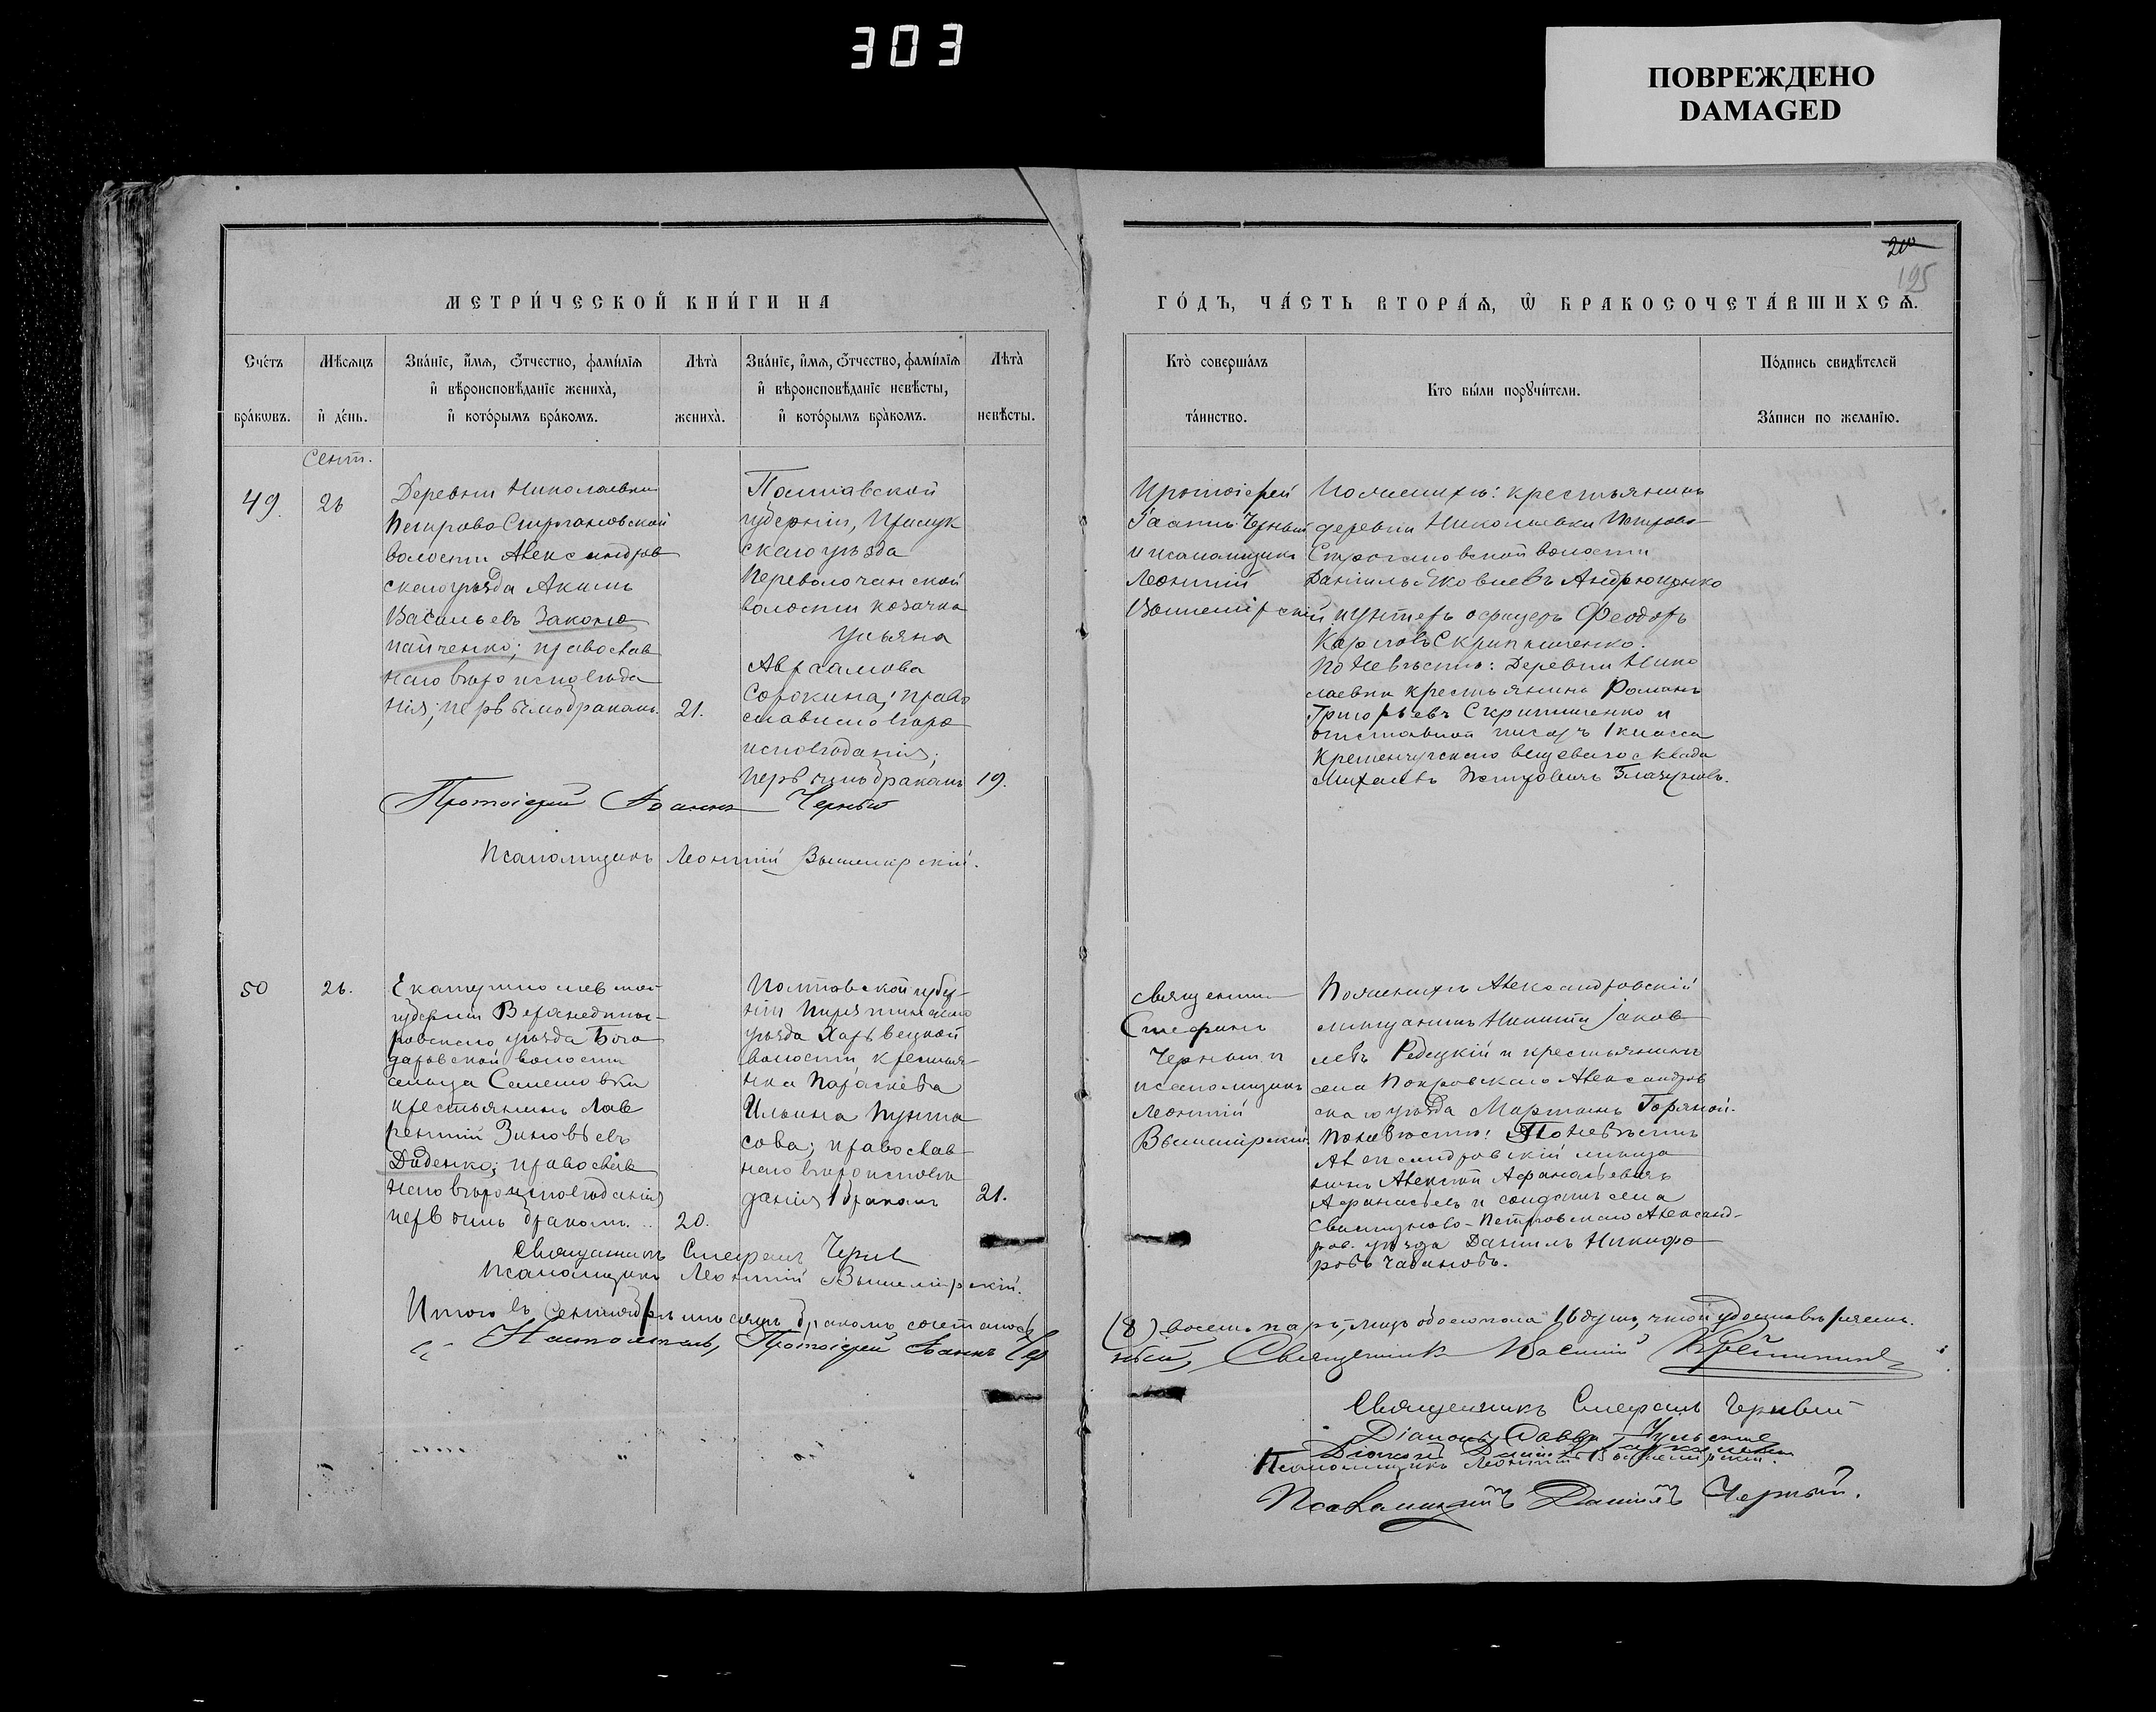 303
ПОВРЕЖДЕНО
DAMAGED
200
195
МЕТРИ́ЧЕСКОЙ КНИ́ГИ НА
ГО́ДЪ, ЧА́СТЬ ВТОРА́Ѧ, Ѡ БРАКОСОЧЕТА́ВШИХСѦ.
Сче́тъ бра́кѡвъ.
Мѣсяцъ и де́нь.
Зва́нїе, и́мѧ, ѻтчество, фами́лїѧ и вѣроисповѣ́данїе жениха̀, и кото́рымъ бра́комъ.
Лѣта̀ жениха̀.
Зва́нїе, и́мѧ, ѻтчество, фами́лїѧ и вѣроисповѣ́данїе невѣ́сты, и кото́рымъ бра́комъ.
Лѣта̀ невѣ́сты.
Кто̀ соверша́лъ та́инство.
Кто бы́ли порꙋчи́тели.
По́дпись свидѣ́телей За́писи по жела́нїю.
Сент.
49.
26
Деревни Николаевки
Петрово-Строгановской
волости Александров
скаго уѣзда Акимъ
Васильевъ Законо
пайченко; православ
наго вѣроисповѣда
нія; первымъ бракомъ.
21.
Полтавской
губерніи, Прилук
скаго уѣзда
Переволочанской
волости козачка
Ульяна
Авраамова
Сорокина; право
славнаго вѣро
исповѣданія;
первымъ бракомъ
19.
Протоіерей
Іоаннъ Черный
и псаломщикъ
Леонтій
Вышемірскій
По женихѣ: крестьянинъ
деревни Николаевки Петрово-
Строгановской волости
Даніилъ Яковлевъ Андрющенко
и унтеръ офицеръ Феодоръ
Карповъ Скрипниченко.
По невѣстѣ: деревни Нико
лаевки крестьянинъ Романъ
Григорьевъ Скрипниченко и
отставной писарь 1 класса
Кременчугскаго вещеваго склада
Михаилъ Петровичъ
Протоіерей Іоаннъ Черный
Псаломщикъ Леонтій Вышемірскій.
50
26.
Екатеринославской
губерніи Верхнеднѣп-
ровскаго уѣзда Бого
даровской волости
сельца Семеновки
крестьянинъ Лав
рентій Зиновьевъ
Диденко; православ
наго вѣроисповѣданія
первымъ бракомъ.
20.
Полтавской губер-
ніи Пирятинскаго
уѣзда Харьвецкой
волости крестьян-
ка Параскева
Ильина Пунта
сова; православ
наго вѣроисповѣ
данія 1 бракомъ
21.
священникъ
Стефанъ
Черный и
псаломщикъ
Леонтій
Вышемірскій.
По женихѣ Александровскій
мѣщанинъ Никита Іаков
левъ Редецкій и крестьянинъ
села Покровскаго Александров
скаго уѣзда Мартинъ Горяной.
По невѣстѣ: По невѣстѣ
Александровскій мѣща
нинъ Алексѣй Афанасьевичъ
Афанасьевъ и солдатъ села
Свистуново-Петровскаго Александ-
ров. уѣзда Даніилъ Никифо
ровъ Чабановъ.
Священникъ Стефанъ Черный
Псаломщикъ Леонтій Вышемірскій.
Итого въ Сентябрѣ мѣсяцѣ бракомъ сочеталось
(8) восемь паръ, лицъ обоего пола 16 душъ, въ чемъ удостовѣряемъ.
Настоятель, Протоіерей Іоаннъ Чер
ный, Священникъ Василій
Священникъ Стефанъ Черный
Діаконъ
Псаломщикъ Леонтій Вышемірскій.
Псаломщикъ Даніилъ Черный.